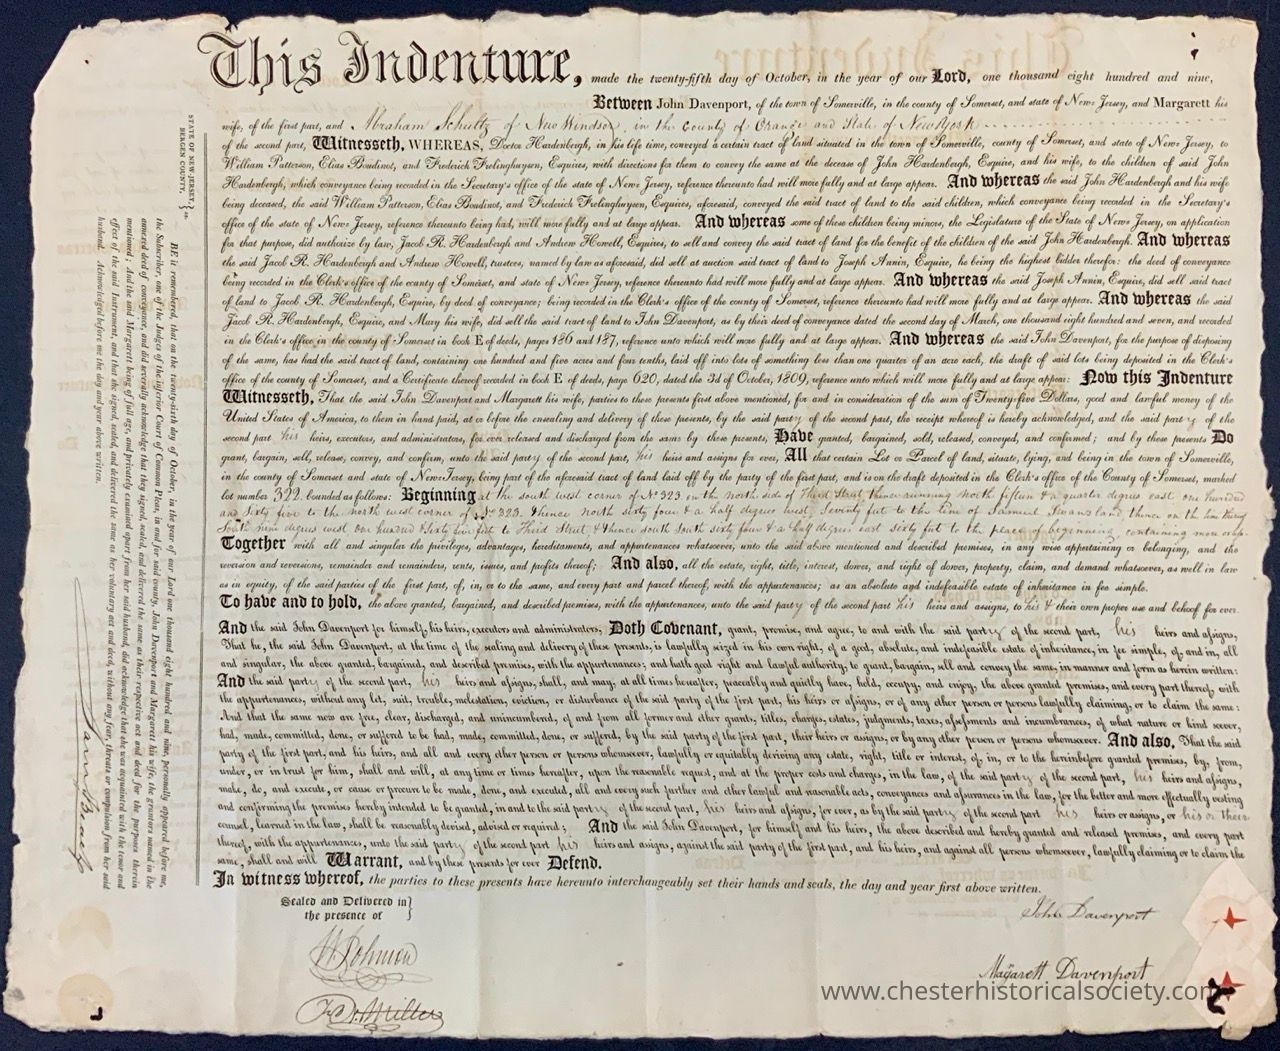 This Indenture, made the twenty-fifth day of October, in the year of our Lord, one thousand eight hundred and nine,
Between John Davenport, of the town of Somerville, in the county of Somerset, and state of New Jersey, and Margarett his
wife, of the first part, and Abraham Schultz of New Windsor, in the County of Orange and State of New York
of the second part, Witnesseth, WHEREAS, Doctor Hardenbergh, in his life time, conveyed a certain tract of land situated in the town of Somerville, county of Somerset, and state of New Jersey, to
William Patterson, Elias Boudinot, and Frederick Frelinghuysen, Esquires, with directions for them to convey the same at the decease of John Hardenbergh, Esquire, and his wife, to the children of said John
Hardenbergh, which conveyance being recorded in the Secretary's office of the state of New Jersey, reference thereunto had will more fully and at large appear. And whereas the said John Hardenbergh and his wife
being deceased, the said William Patterson, Elias Boudinot, and Frederick Frelinghuysen, Esquires, aforesaid, conveyed the said tract of land to the said children, which conveyance being recorded in the Secretary's
office of the state of New Jersey, reference thereunto being had, will more fully and at large appear. And whereas some of these children being minors, the Legislature of the State of New Jersey, on application
for that purpose, did authorize by law, Jacob R. Hardenbergh and Andrew Howell, Esquires, to sell and convey the said tract of land for the benefit of the children of the said John Hardenbergh. And whereas
the said Jacob R. Hardenbergh and Andrew Howell, trustees, named by law as aforesaid, did sell at auction said tract of land to Joseph Annin, Esquire, he being the highest bidder therefor: the deed of conveyance
being recorded in the Clerk's office of the county of Somerset, and state of New Jersey, reference thereunto had will more fully and at large appear. And whereas the said Joseph Annin, Esquire, did sell said tract
of land to Jacob R. Hardenbergh, Esquire, by deed of conveyance; being recorded in the Clerk's office of the county of Somerset, reference thereunto had will more fully and at large appear. And whereas the said
Jacob R. Hardenbergh, Esquire, and Mary his wife, did sell the said tract of land to John Davenport, as by their deed of conveyance dated the second day of March, one thousand eight hundred and seven, and recorded
in the Clerk's office in the county of Somerset in book E of deeds, pages 186 and 187, reference unto which will more fully and at large appear. And whereas the said John Davenport, for the purpose of disposing
of the same, has had the said tract of land, containing one hundred and five acres and four tenths, laid off into lots of something less than one quarter of an acre each, the draft of said lots being deposited in the Clerk's
office of the county of Somerset, and a Certificate thereof recorded in book E of deeds, page 620, dated the 3d of October, 1809, reference unto which will more fully and at large appear: Now this Indenture
Witnesseth, That the said John Davenport and Margarett his wife, parties to these presents first above mentioned, for and in consideration of the sum of Twenty-five Dollars, good and lawful money of the
United States of America, to them in hand paid, at or before the ensealing and delivery of these presents, by the said party of the second part, the receipt whereof is hereby acknowledged, and the said party of the
second part his heirs, executors, and administrators, for ever released and discharged from the same by these presents, Have granted, bargained, sold, released, conveyed, and confirmed; and by these presents Do
grant, bargain, sell, release, convey, and confirm, unto the said party of the second part, his heirs and assigns for ever, All that certain Lot or Parcel of land, situate, lying, and being in the town of Somerville,
in the county of Somerset and state of New Jersey, being part of the aforesaid tract of land laid off by the party of the first part, and is on the draft deposited in the Clerk's office of the County of Somerset, marked
lot number 322. bounded as follows: Beginning at the south west corner of No 323. in the north side of Third Street thence running North fifteen & a quarter degrees east one hundred
and Sixty five to the north west corner of No 323. thence north sixty four & a half degrees west, seventy feet to the line of Samuel Swans land thence on the line thereof
South nine degrees west one hundred & Sixty five feet to Third Street & thence south South sixty four & a half degrees east sixty feet to the place of beginning, containing
Together with all and singular the privileges, advantages, hereditaments, and appurtenances whatsoever, unto the said above mentioned and described premises, in any wise appertaining or belonging, and the
reversion and reversions, remainder and remainders, rents, issues, and profits thereof; And also, all the estate, right, title, interest, dower, and right of dower, property, claim, and demand whatsoever, as well in law
as in equity, of the said parties of the first part, of, in, or to the same, and every part and parcel thereof, with the appurtenances: as an absolute and indefeasible estate of inheritance in fee simple.
To have and to hold, the above granted, bargained, and described premises, with the appurtenances, unto the said party of the second part his heirs and assigns, to his & their own proper use and behoof for ever.
And the said John Davenport for himself, his heirs, executors and administrators, Doth Covenant, grant, promise, and agree, to and with the said party of the second part, his heirs and assigns,
That he, the said John Davenport, at the time of the sealing and delivery of these presents, is lawfully seized in his own right, of a good, absolute, and indefeasible estate of inheritance, in fee simple, of, and in, all
and singular, the above granted, bargained, and described premises, with the appurtenances; and hath good right and lawful authority, to grant, bargain, sell and convey the same, in manner and form as herein written:
And the said party of the second part, his heirs and assigns, shall, and may, at all times hereafter, peaceably and quietly have, hold, occupy, and enjoy, the above granted premises, and every part thereof, with
the appurtenances, without any let, suit, trouble, molestation, eviction, or disturbance of the said party of the first part, his heirs or assigns, or of any other person or persons lawfully claiming, or to claim the same:
And that the same now are free, clear, discharged, and unincumbered, of and from all former and other grants, titles, charges, estates, judgments, taxes, assessments and incumbrances, of what nature or kind soever,
had, made, committed, done, or suffered to be had, made, committed, done, or suffered, by the said party of the first part, their heirs or assigns, or by any other person or persons whomsoever. And also, That the said
party of the first part, and his heirs, and all and every other person or persons whomsoever, lawfully or equitably deriving any estate, right, title or interest, of, in, or to the hereinbefore granted premises, by, from,
under, or in trust for him, shall and will, at any time or times hereafter, upon the reasonable request, and at the proper costs and charges, in the law, of the said party of the second part, his heirs and assigns,
make, do, and execute, or cause or procure to be made, done, and executed, all and every such further and other lawful and reasonable acts, conveyances and assurances in the law, for the better and more effectually vesting
and confirming the premises hereby intended to be granted, in and to the said party of the second part, his heirs and assigns, for ever, as by the said party of the second part his heirs or assigns, or his or their
counsel, learned in the law, shall be reasonably devised, advised or required; And the said John Davenport, for himself and his heirs, the above described and hereby granted and released premises, and every part
thereof, with the appurtenances, unto the said party of the second part his heirs and assigns, against the said party of the first part, and his heirs, and against all persons whomsoever, lawfully claiming or to claim the
same, shall and will Warrant, and by these presents for ever Defend.
In witness whereof, the parties to these presents have hereunto interchangeably set their hands and seals, the day and year first above written.
Sealed and Delivered in
the presence of
W. Johnson
Miller
John Davenport
Magarett Davenport
STATE OF NEW-JERSEY, ss.
BERGEN COUNTY.
BE it remembered, that on the twenty-sixth day of October, in the year of our Lord one thousand eight hundred and nine, personally appeared before me,
the Subscriber, one of the Judges of the inferior Court of Common Pleas, in and for said county, John Davenport and Margarett his wife, the grantors named in the
annexed deed of conveyance, and did severally acknowledge that they signed, sealed, and delivered the same as their respective act and deed for the purposes therein
mentioned; And the said Margarett being of full age, and privately examined apart from her said husband, did acknowledge that she was acquainted with the tenor and
effect of the said Instrument, and that she signed, sealed and delivered the same as her voluntary act and deed, without any fear, threats or compulsion from her said
husband. Acknowledged before me the day and year above written.
www.chesterhistoricalsociety.com